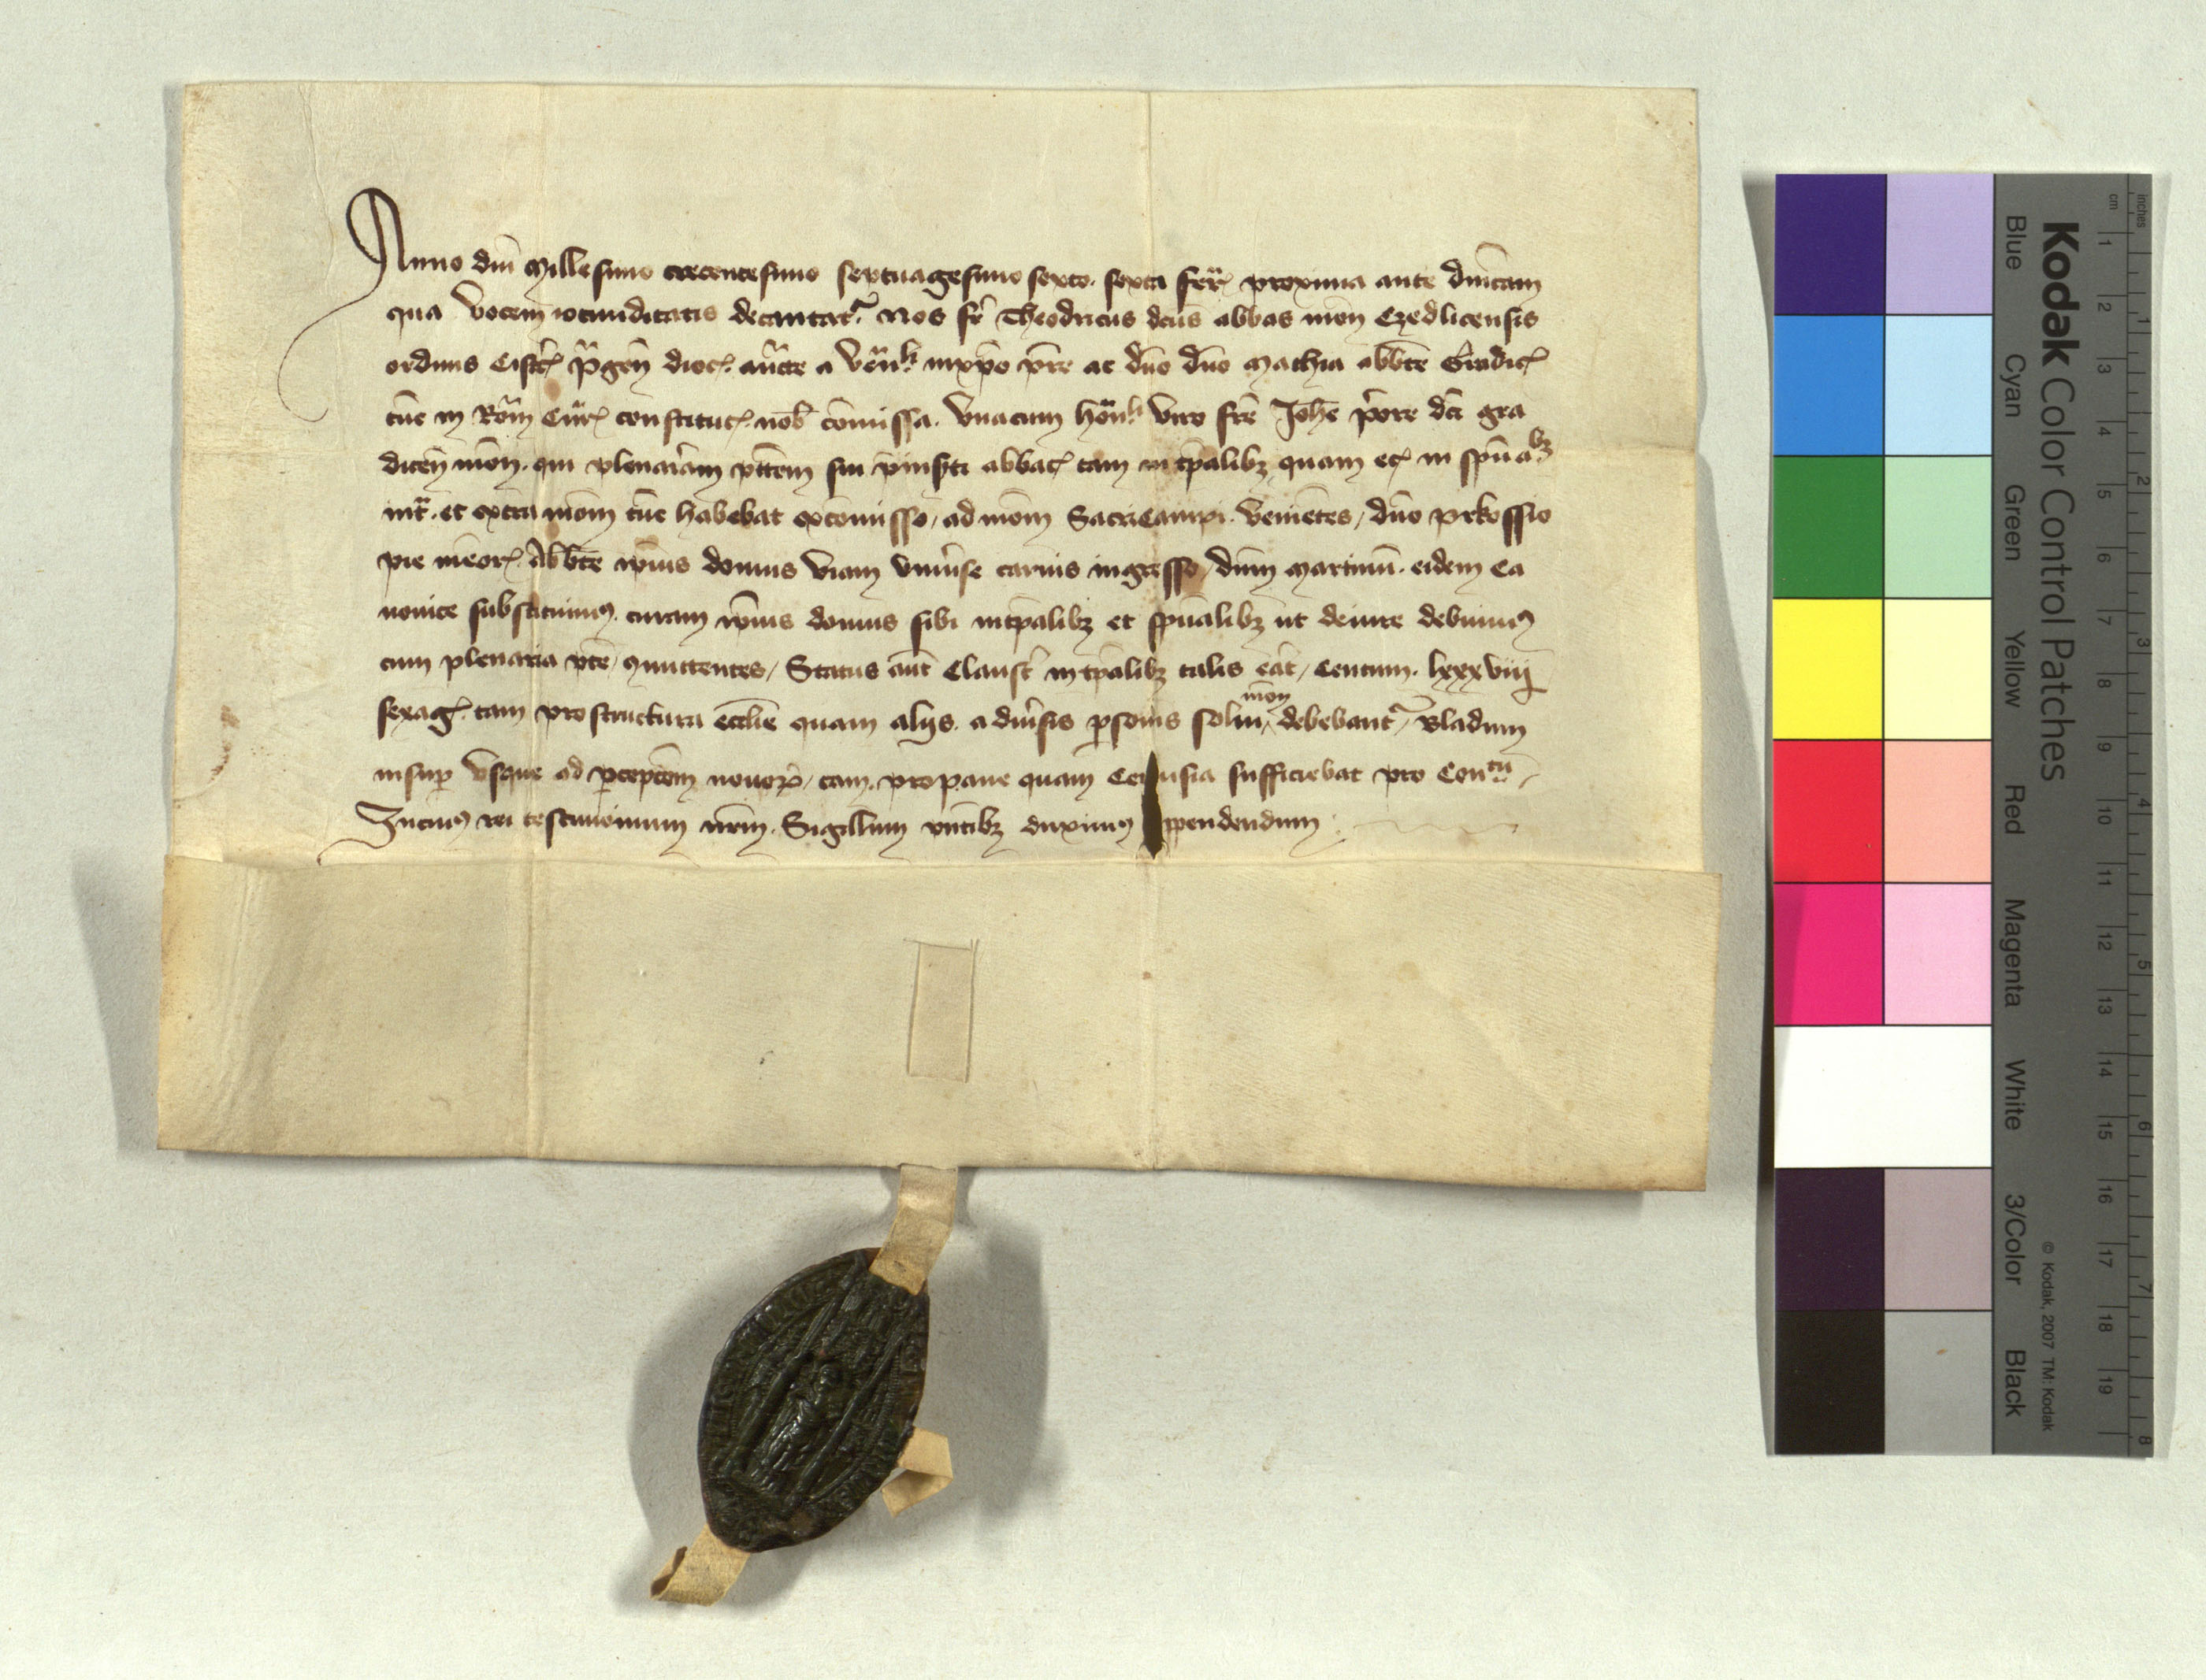 Anno dnī Millesimo trecentesimo septuagesimo sexto. sexta ferͥ proxima ante dnīcam
qua vocem iocunditatis decantatᵣ Nos fr̄ Theodricus dc̄us abbas mōn Czedlicensis
ordinis Cistc̄ pͣgēn dioc. auc̄te a ven̄li inxp̄o pr̄e ac dn̄o dn̄o Mathia abbt̄e Gradic̄
tūc in Rom̄ Cur̄ constitut̄ nob̄ cōmissa. vnacum hon̄li viro fr̄e Joh̄e p̄ore dc̄i gra
dicēn mōn. qui plenariam ptt̄em sui abbat̄ tam in tp̄alibꝫ quam ec̄ in spūabꝫ
intͣ. et extra mōm tūc habebat excōmisso, ad mōm Sacricampi. venientēs, dn̄o Prkossio
pie mēor̄ Abbt̄e ip̄ius domus viam vniūse carnis ingresso, dn̄m Martinū. eidem Ca
nonice substituimꝰ. curam ip̄ius domus sibi intp̄alibꝫ et spūalibꝫ ut deiure debuimꝰ
cum plenaria pt̄e, Status aūt Claustͥ intp̄alibꝫ talis eāt, Centum. lxxxviij
sexag. tam pro structura eccl̄ie quam alijs. a diūsis ꝑsonis mōn debebantᵣ, Bladum
insuꝑ vsque ad ꝑcepcōm nouoꝝ, tam. pro pane quam Ceruisia sufficiebat pro Conᵗᵘ,
Incuiꝰ rei testimonium nr̄m. Sigillum pn̄tibꝫ duximꝰ appendendum
Kodak Color Control Patches
Blue Cyan Green Yellow Red Magenta White 3/Color Black
© Kodak, 2007 TM: Kodak
inches 1 2 3 4 5 6 7 8
cm 1 2 3 4 5 6 7 8 9 10 11 12 13 14 15 16 17 18 19